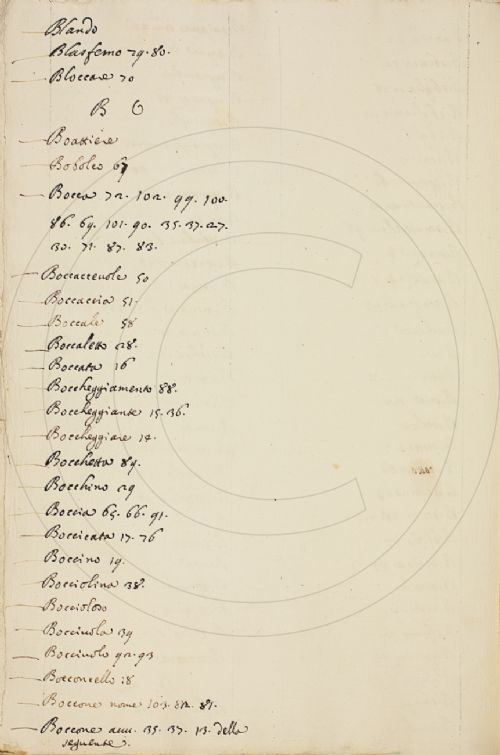 Blando
Blasfemo 29. 80.
Bloccare 70
B O
Boattiere
Bobolco 67
Bocca 72. 102. 99. 100.
86. 69. 101. 90. 35. 37. 27.
30. 71. 87. 83.
Boccaccevole 50
Boccaccia 51.
Boccale 58
Boccaletto 28.
Boccata 16
Boccheggiamento 88.
Boccheggiante 15. 36.
Boccheggiare 14.
Bocchetta 89.
Bocchino 29
Boccia 65. 66. 91.
Boccicata 17. 76
Boccino 19.
Bocciolina 38.
Boccioloso
Bocciuola 39
Bocciuolo 92. 93
Bocconcello 18
Boccone nome 103. 82. 81.
Boccone avv. 35. 37. 13. della
seguente.